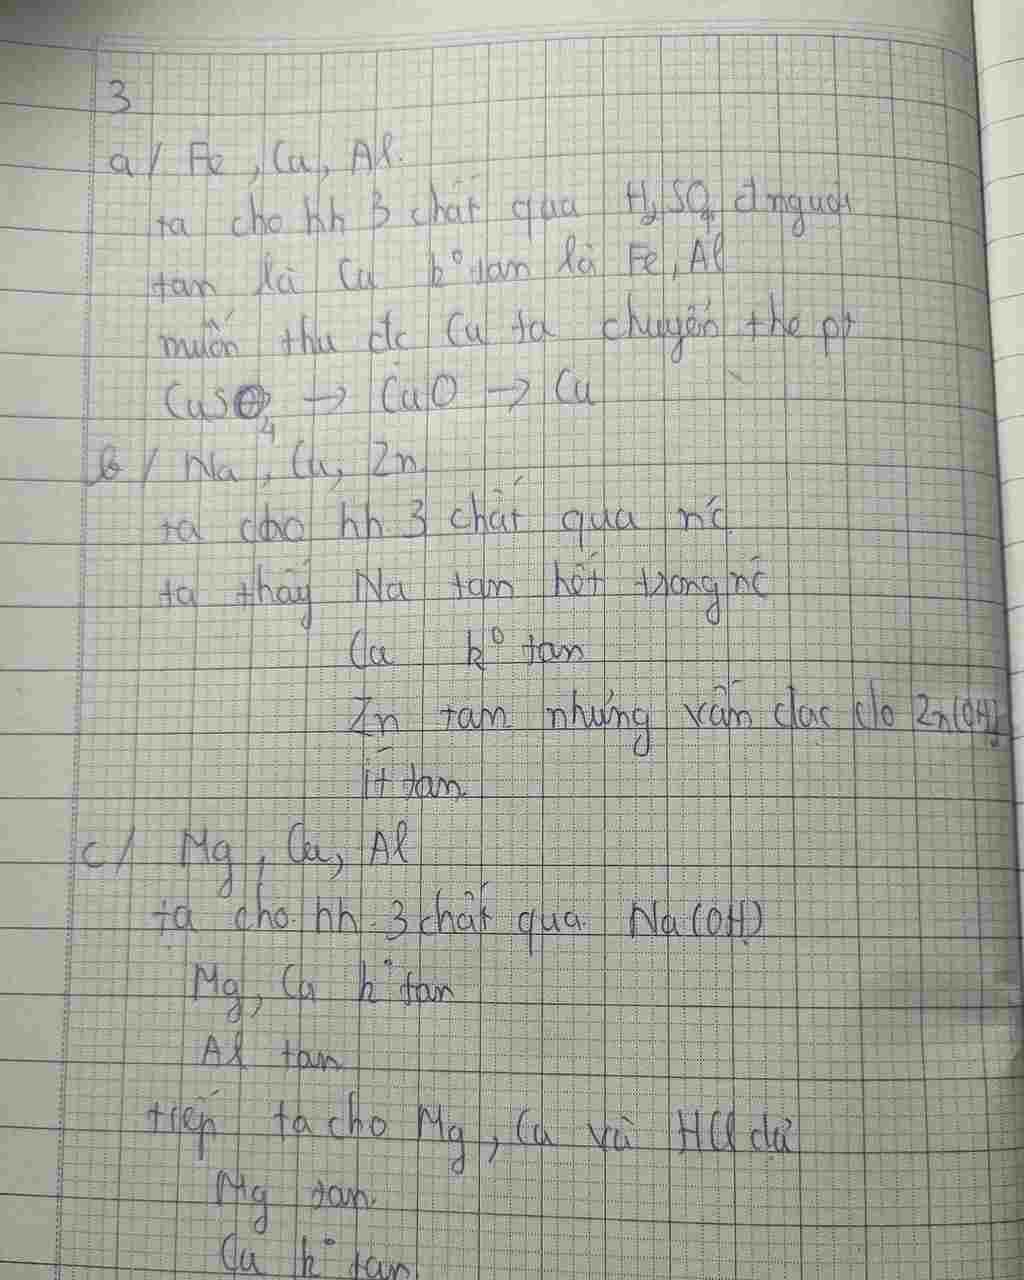 3
a/ Fe, Cu, Al.
ta cho hh 3 chất qua H2SO4 đ nguội
tan là Cu k° tan là Fe, Al
muốn thu đc Cu ta chuyển the pt
CuSO4 → CuO → Cu
b/ Na, Cu, Zn
ta cho hh 3 chất qua nc
ta thấy Na tan hết trong nc
Cu k° tan
Zn tan nhưng vẫn đục do Zn(OH)2
ít tan
c/ Mg, Cu, Al
ta cho hh 3 chất qua Na(OH)
Mg, Cu k° tan
Al tan
tiếp ta cho Mg, Cu và HCl dư
Mg tan
Cu k° tan